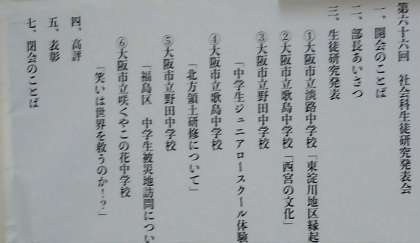 第六十六回　社会科生徒研究発表会
一、開会のことば
二、部長あいさつ
三、生徒研究発表
①大阪市立淡路中学校「東淀川地区縁起
②大阪市立歌島中学校「西宮の文化」
③大阪市立野田中学校
「中学生ジュニアロースクール体験
④大阪市立歌島中学校
「北方領土研修について」
⑤大阪市立野田中学校
「福島区　中学生被災地訪問につい
⑥大阪市立咲くやこの花中学校
「笑いは世界を救うのか！？」
四、高評
五、表彰
七、閉会のことば